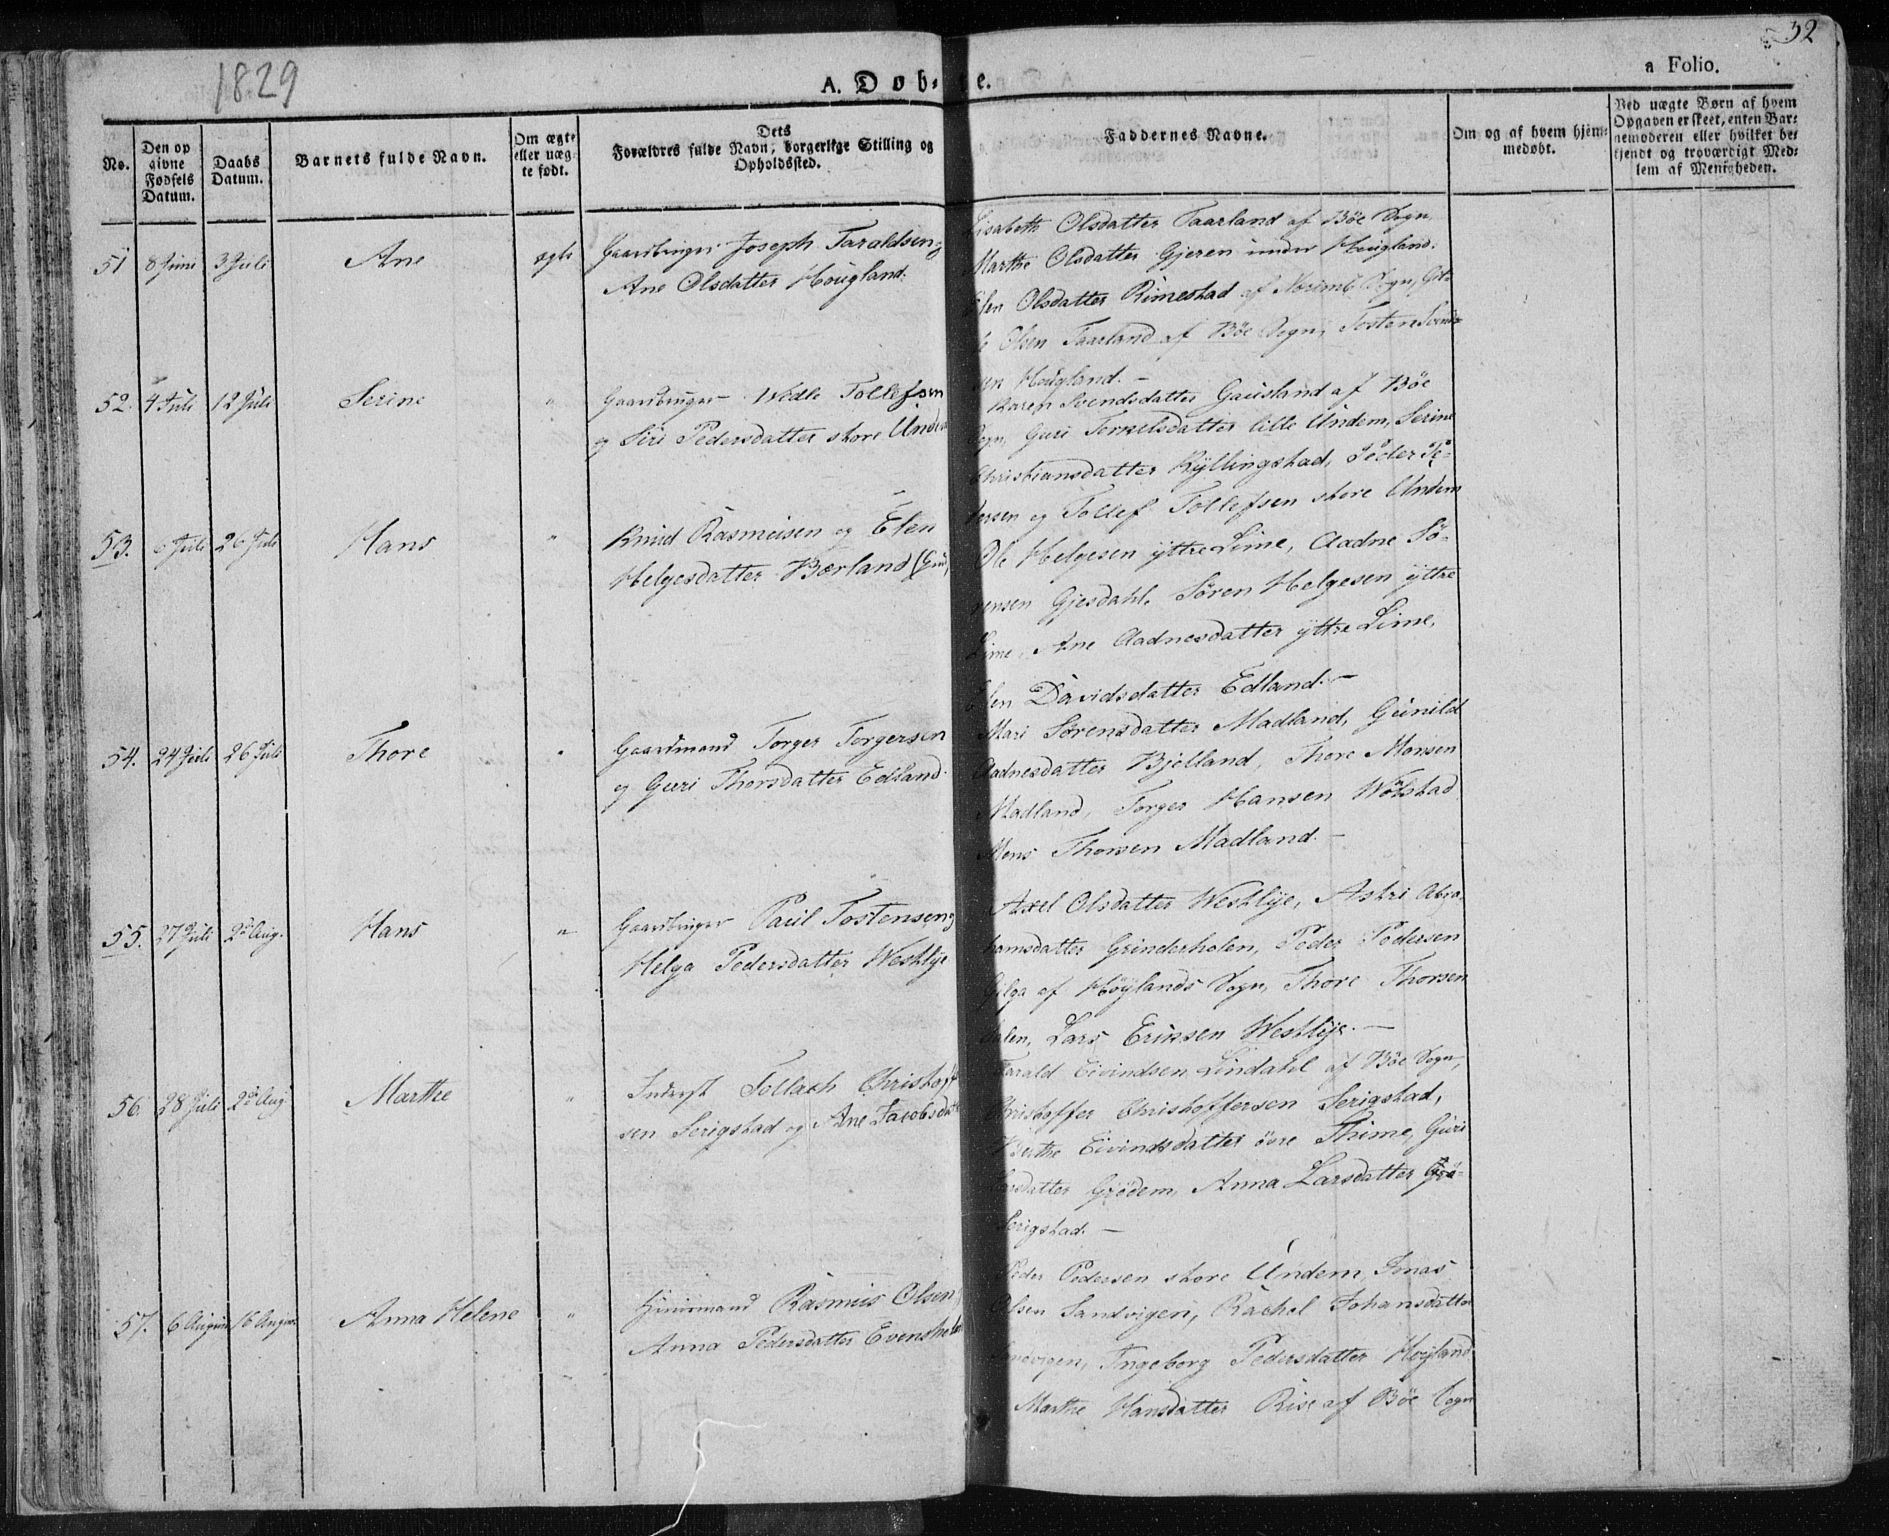 1829
A. Døb-te.
32
a Folio.
No.
Den op
givne
Fødsels
Datum.
Daabs
Datum.
Barnets fulde Navn.
Om ægte
eller uæg-
te født.
Dets
Forældres fulde Navn, borgerlige Stilling og
Opholdssted.
Faddernes Navne.
Om og af hvem hjem-
medøbt.
Ved uægte Børn af hvem
Opgaven er skeet, enten Bar-
nemoderen eller hvilket be-
kjendt og troværdigt Med-
lem af Menigheden.
51 8 Juni 3 Juli Ane ægte Gaardbruger Joseph Taraldsen og
Ane Olsdatter Hougland.
Lisabeth Olsdatter Taarland af Bøe Sogn,
Marthe Olsdatter Gjeren under Hougland.
Elen Olsdatter Rimestad af Sogn,
Olsen Taarland af Bøe Sogn, Tosten Svend-
sen Hougland. -
52. 4 Juli 12 Juli Serine " Gaardbruger Vedle Tollefsen
og Siri Pedersdatter store Undem
Karen Svendsdatter Gausland af Bøe
Sogn, Guri Tormelsdatter litle Undem, Serine
Christiansdatter Kyllingstad, Peder Pe-
dersen og Tollef Tollefsen store Undem
53. 6 Juli 26 Juli Hans " Knud Rasmusen og Elen
Helgesdatter Bærland
Ole Helgesen yttre Lime, Aadne Sø-
rensen Gjesdahl, Søren Helgesen yttre
Lime, Ane Aadnesdatter yttre Lime,
Elen Davidsdatter Edland. -
54. 24 Juli 26 Juli Thore " Gaardmand Torger Torgersen
og Guri Thorsdatter Edland.
Mari Sørensdatter Madland, Gunild
Aadnesdatter Bjelland, Thore Monsen
Madland, Torger Hansen Wølstad
Mons Thorsen Madland. -
55. 27 Juli 2d Aug. Hans " Gaardbruger Paul Tostensen og
Helga Pedersdatter Westlye
Axel Olsdatter Westlye, Astri Abra-
hamsdatter Grinderholen, Peder Pedersen
Gilga af Høylands Sogn, Thore Thorsen
Dalen, Lars Erissen Westlye. -
56. 28 Juli 2d Aug Marthe " Inderst Tollach Christoff
sen Serigstad og Ane Jacobsdatter
Tarald Eivindsen Lindahl af Bøe Sogn,
Christoffer Christoffersen Serigstad,
Berthe Eivindsdatter øvre Thime, Guri
Larsdatter Grødem, Anna Larsdatter Grø-
Serigstad. -
57. 6 August 16 August Anna Helene " Huusmand Rasmus Olsen
Anna Pedersdatter Evensho
Peder Pedersen store Undem, Jonas
Olsen Sandvigen, Rachel Johansdatter
Sandvigen, Ingeborg Pedersdatter Høyland
Marthe Hansdatter Rise af Bøe Sogn